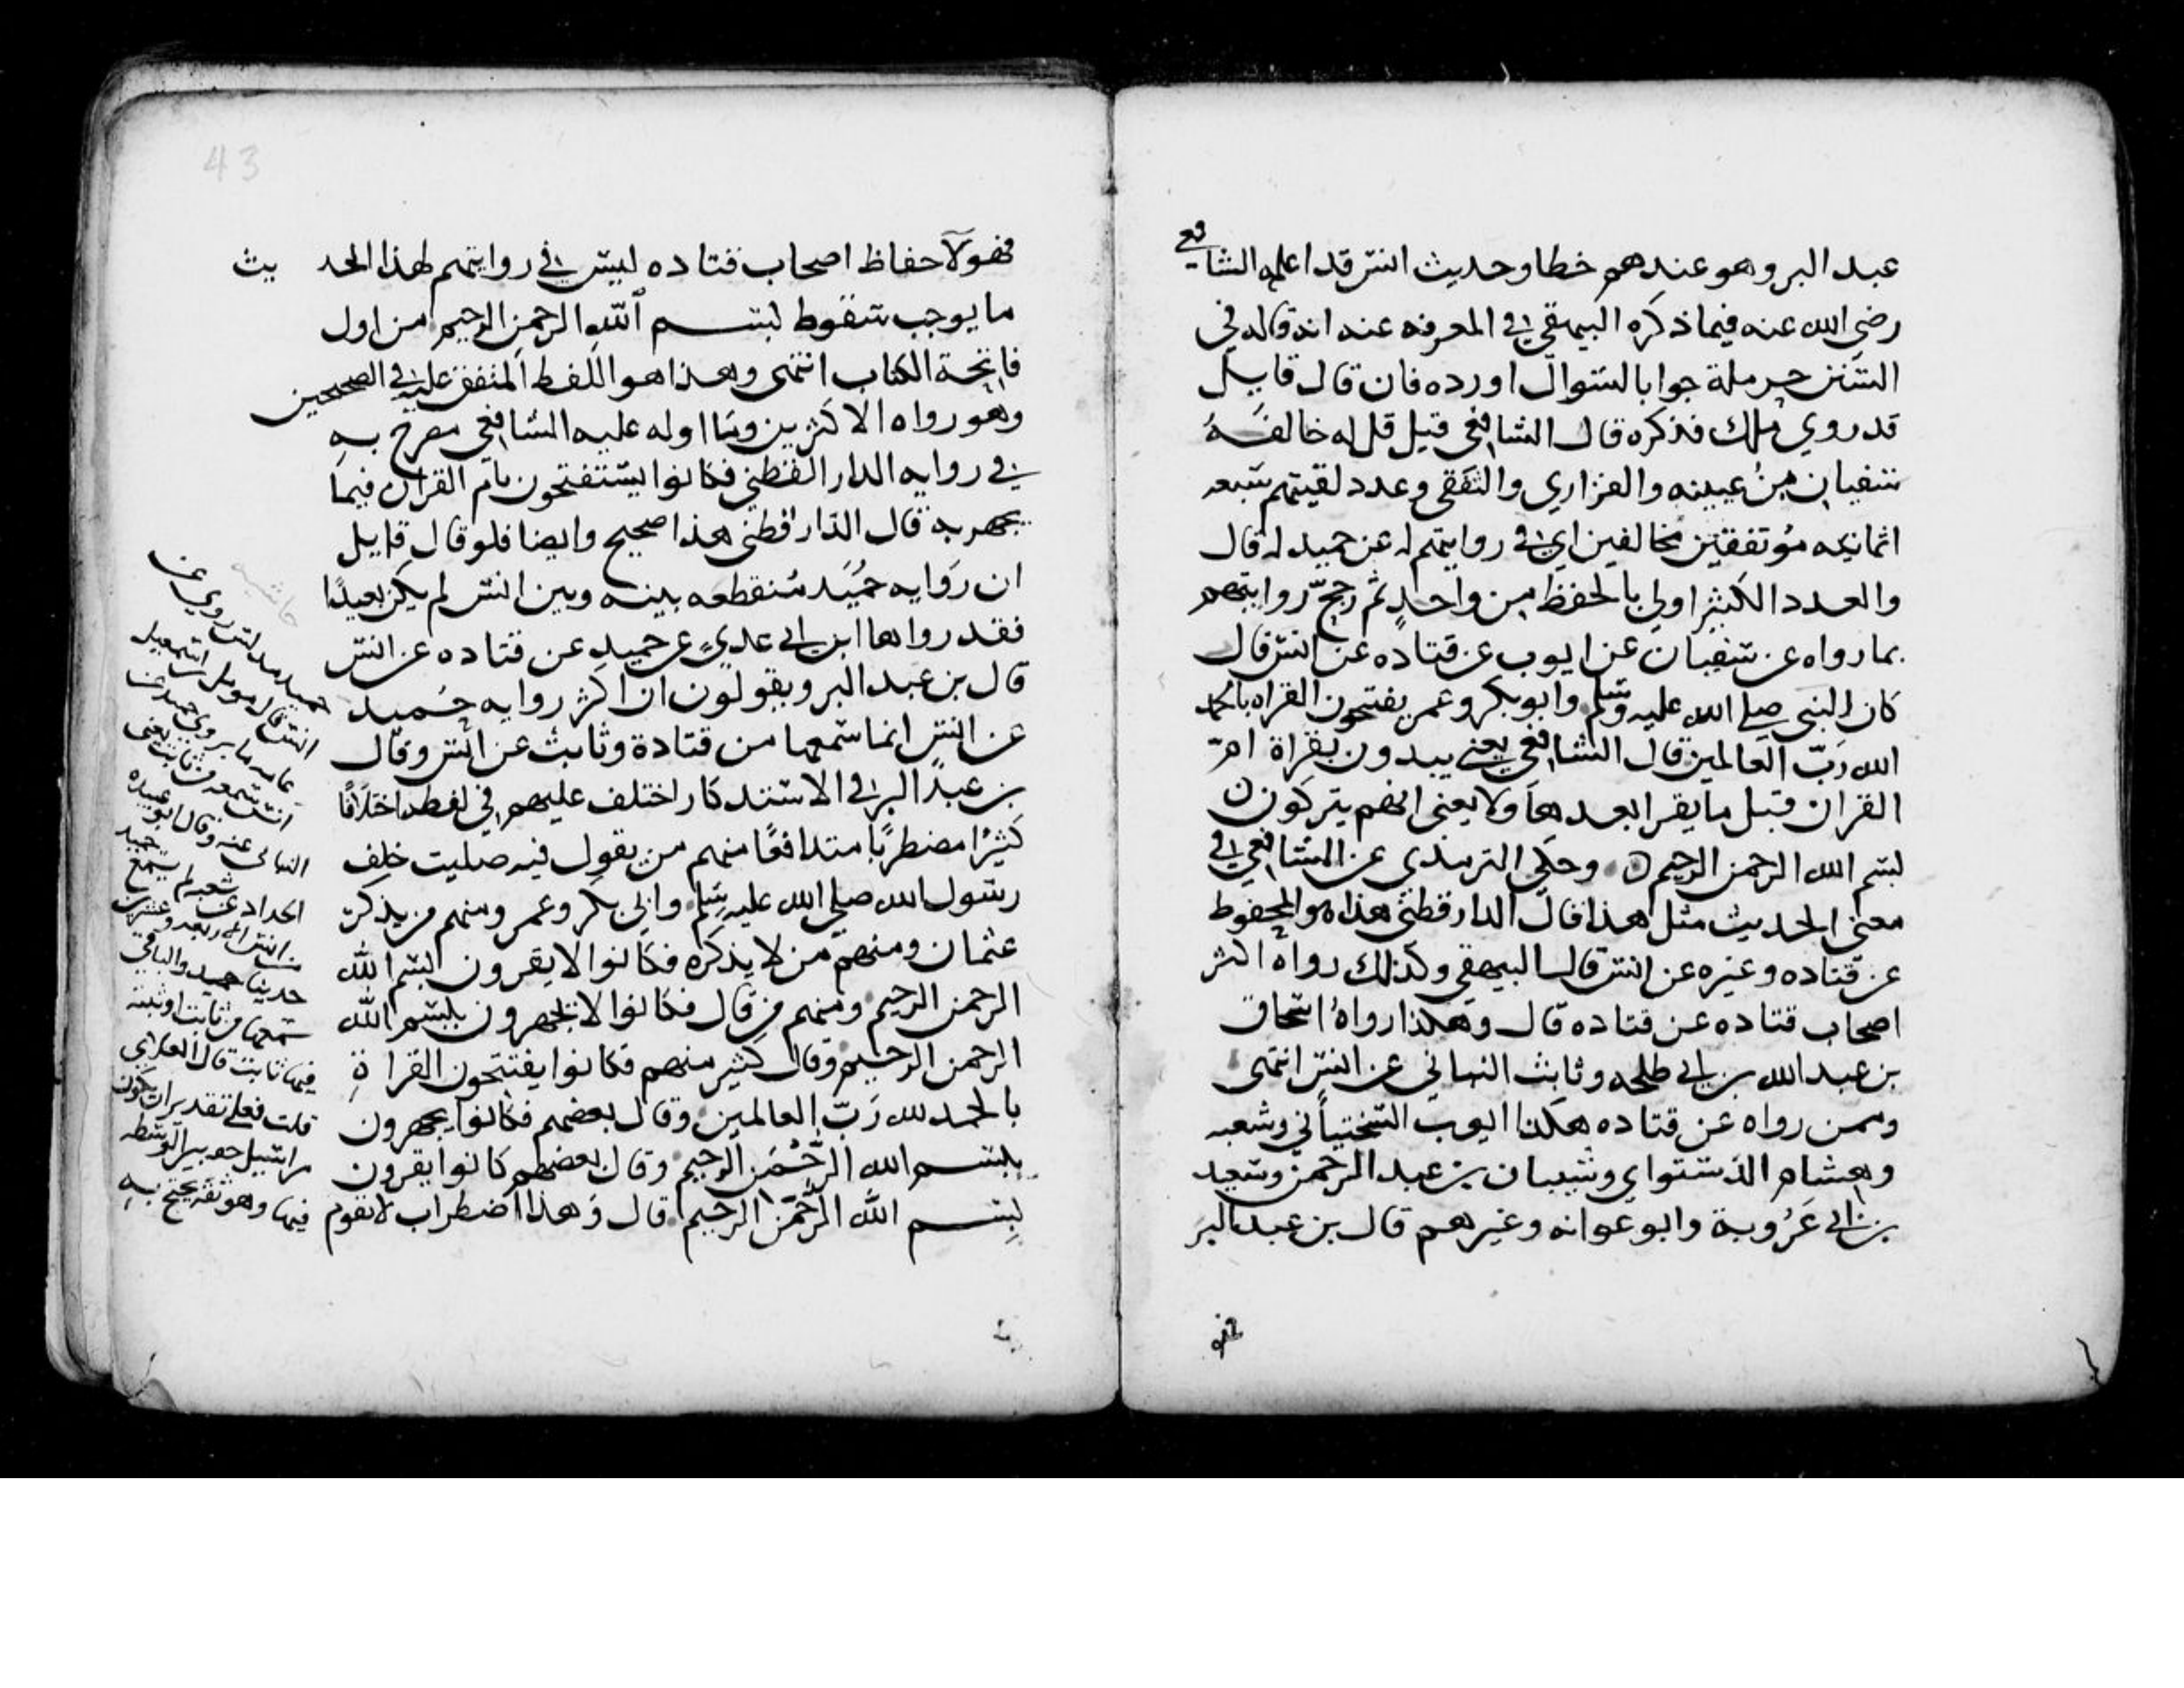 عبد البر وهو عندهم خطا وحديث انس قد اعله الشافعي
رضي الله عنه فيما ذكره البيهقي في المعرفه عنه انه قاله في
السنن حرملة جوابا لسوال اورده فان قال قايل
قد روي ملك فذكره قال الشافعي قيل قل له خالفه
سفيان بن عيينه والفزاري والثقفي وعدد لقيتهم سبعه
اثمانيه موتفقين مخالفين اي في روايتهم له عن حميد له قال
والعدد الكثير اولي بالحفظ من واحد ثم رجح روايتهم
بما رواه عن سفيان عن ايوب عن قتاده عن انس قال
كان النبي صلي الله عليه وسلم وابوبكر وعمر يفتحون القراه بالحمد
الله رب العالمين قال الشافعي يعني يبدون بقراة ام
القران قبل ما يقرا بعدها ولا يعني انهم يتركون
بسم الله الرحمن الرحيم وحكي الترمذي عن الشافعي في
معني الحديث مثل هذا قال الدارقطني هذا هو المحفوظ
عن قتاده وغيره عن انس قال البيهقي وكذلك رواه اكثر
اصحاب قتاده عن قتاده قال وهكذا رواه اسحاق
بن عبد الله بن ابي طلحه وثابث البناني عن انس انتهى
وممن رواه عن قتاده هكذا ايوب السختياني وشعبه
وهشام الدستواي وشيبان بن عبد الرحمن وسعيد
بن ابي عروبة وابو عوانه وغيرهم قال بن عبد البر
فهو
43
فهولآ حفاظ اصحاب قتاده ليس في روايتهم لهذا الحديث
ما يوجب سقوط بسم الله الرحمن الرحيم من اول
فاتحة الكتاب انتهى وهذا هو اللفظ المتفق عليه في الصحيحين
وهو رواه الاكثرين وما اوله عليه الشافعي مصرح به
في روايه الدارالقطني فكانوا يستفتحون بام القران فيما
يجهر به قال الدارقطني هذا صحيح وايضا فلو قال قايل
ان روايه حميد منقطعه بينه وبين انس لم يكن بعيدا
فقد رواها ابن ابي عدي عن حميد عن قتاده عن انس
قال بن عبد البر ويقولون ان اكثر روايه حميد
عن انس انما سمعها من قتادة وثابث عن انس وقال
بن عبد البر في الاستذكار اختلف عليهم في لفظه اختلافا
كثيرا مضطربا متدافعا منهم من يقول فيه صليت خلف
رسول الله صلي الله عليه وسلم وابي بكر وعمر ومنهم من يذكر
عثمان ومنهم من لا يذكره فكانوا لا يقرون بسم الله
الرحمن الرحيم ومنهم من قال فكانوا لا يجهرون ببسم الله
الرحمن الرحيم وقال كثير منهم فكانوا يفتتحون القراة
بالحمد لله رب العالمين وقال بعضهم فكانوا يجهرون
ببسم الله الرحمن الرحيم وقال بعضهم كانوا يقرون
بسم الله الرحمن الرحيم قال وهذا اضطراب لا تقوم
حاشيه
حميد مدلس روي عن
انس قال مومل بن اسمعيل
عامه ما يروي حميد عن
انس سمعه من ثابت يعني
البناني عنه وقال ابو عبيده
الحداد عن شعبه لم يسمع حميد
من انس الا اربعه وعشرين
حديثا والباقي
سمعها من ثابت او ثبته
فيها ثابت قال العلاي
قلت فعلي تقدير ان يكون
مراسيل الوسطه
فيها وهو ثقه يحتج به